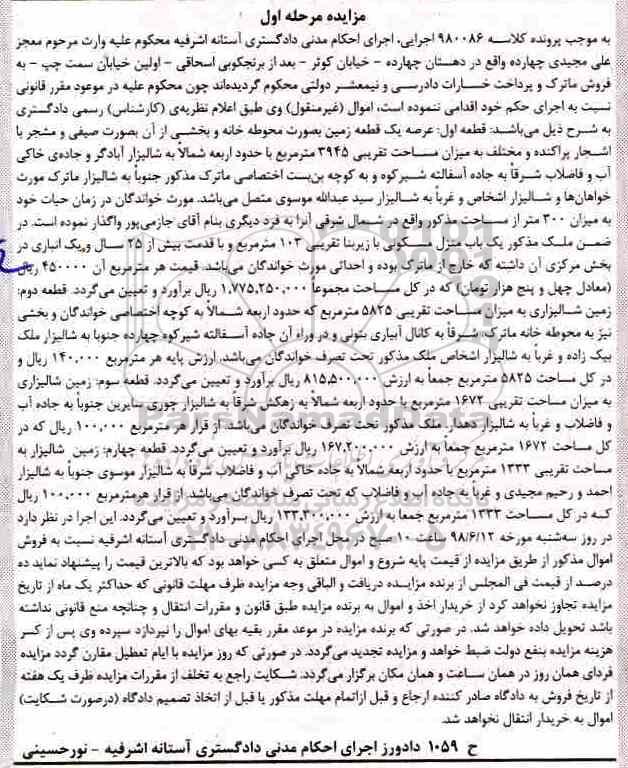 مزایده مرحله اول
به موجب پرونده کلاسه ۹۸۰۰۸۶ اجرایی، اجرای احکام مدنی دادگستری آستانه اشرفیه محکوم علیه وارث مرحوم معجز
علی مجیدی چهارده واقع در دهستان چهارده - خیابان کوثر - بعد از برنجکوبی اسحاقی - اولین خیابان سمت چپ - به
فروش ماترک و پرداخت خسارات دادرسی و نیمعشر دولتی محکوم گردیده‌اند چون محکوم علیه در موعود مقرر قانونی
نسبت به اجرای حکم خود اقدامی ننموده است، اموال (غیرمنقول) وی طبق اعلام نظریه‌ی (کارشناس) رسمی دادگستری
به شرح ذیل می‌باشد: قطعه اول: عرصه یک قطعه زمین بصورت محوطه خانه و بخشی از آن بصورت صیفی و مشجر با
اشجار پراکنده و مختلف به میزان مساحت تقریبی ۳۹۴۵ مترمربع با حدود اربعه شمالاً به شالیزار آبادگر و جاده‌ی خاکی
آب و فاضلاب شرقاً به جاده آسفالته شیرکوه و به کوچه بن‌بست اختصاصی ماترک مذکور جنوباً به شالیزار ماترک مورث
خواهان‌ها و شالیزار اشخاص و غرباً به شالیزار سید عبدالله موسوی متصل می‌باشد. مورث خواندگان در زمان حیات خود
به میزان ۳۰۰ متر از مساحت مذکور واقع در شمال شرقی آنرا به فرد دیگری بنام آقای جازمی‌پور واگذار نموده است. در
ضمن ملک مذکور یک باب منزل مسکونی با زیربنا تقریبی ۱۰۳ مترمربع و با قدمت بیش از ۲۵ سال ویک انباری در
بخش مرکزی آن داشته که خارج از ماترک بوده و احداثی مورث خواندگان می‌باشد. قیمت هر مترمربع آن ۴۵۰۰۰۰ ریال
(معادل چهل و پنج هزار تومان) که در کل مساحت مجموعاً ۱,۷۷۵,۲۵۰,۰۰۰ ریال برآورد و تعیین می‌گردد. قطعه دوم:
زمین شالیزاری به میزان مساحت تقریبی ۵۸۲۵ مترمربع که حدود اربعه شمالاً به کوچه اختصاصی خواندگان و بخشی
نیز به محوطه خانه ماترک، شرقاً به کانال آبیاری بتونی و در وراء آن جاده آسفالته شیرکوه چهارده جنوبا به شالیزار ملک
بیک زاده و غرباً به شالیزار اشخاص ملک مذکور تحت تصرف خواندگان می‌باشد. ارزش پایه هر مترمربع ۱۴۰,۰۰۰ ریال و
در کل مساحت ۵۸۲۵ مترمربع جمعاً به ارزش ۸۱۵,۵۰۰,۰۰۰ ریال برآورد و تعیین می‌گردد. قطعه سوم: زمین شالیزاری
به میزان مساحت تقریبی ۱۶۷۲ مترمربع با حدود اربعه شمالاً به زهکش شرقاً به شالیزار جوری سایرین جنوباً به جاده آب
و فاضلاب و غرباً به شالیزار دهدار. ملک مذکور تحت تصرف خواندگان می‌باشد. از قرار هر مترمربع ۱۰۰,۰۰۰ ریال که در
کل مساحت ۱۶۷۲ مترمربع جمعاً به ارزش ۱۶۷,۲۰۰,۰۰۰ ریال برآورد و تعیین می‌گردد. قطعه چهارم: زمین شالیزار به
مساحت تقریبی ۱۳۳۳ مترمربع با حدود اربعه شمالا به جاده خاکی آب و فاضلاب شرقاً به شالیزار موسوی جنوباً به شالیزار
احمد و رحیم مجیدی و غرباً به جاده آب و فاضلاب که تحت تصرف خواندگان می‌باشد. از قرار هرمترمربع ۱۰۰,۰۰۰ ریال
که در کل مساحت ۱۳۳۳ مترمربع جمعا به ارزش ۱۳۳,۳۰۰,۰۰۰ ریال برآورد و تعیین می‌گردد. این اجرا در نظر دارد
در روز سه‌شنبه مورخه ۹۸/۶/۱۲ ساعت ۱۰ صبح در محل اجرای احکام مدنی دادگستری آستانه اشرفیه نسبت به فروش
اموال مذکور از طریق مزایده از قیمت پایه شروع و اموال متعلق به کسی خواهد بود که بالاترین قیمت را پیشنهاد نماید ده
درصد از قیمت فی المجلس از برنده مزایده دریافت و الباقی وجه مزایده ظرف مهلت قانونی که حداکثر یک ماه از تاریخ
مزایده تجاوز نخواهد کرد از خریدار اخذ و اموال به برنده مزایده طبق قانون و مقررات انتقال و چنانچه منع قانونی نداشته
باشد تحویل داده خواهد شد. در صورتی که برنده مزایده در موعد مقرر بقیه بهای اموال را نپردازد سپرده وی پس از کسر
هزینه مزایده بنفع دولت ضبط خواهد و مزایده تجدید می‌گردد. در صورتی که روز مزایده با ایام تعطیل مقارن گردد مزایده
فردای همان روز در همان ساعت و همان مکان برگزار می‌گردد. شکایت راجع به تخلف از مقررات مزایده ظرف یک هفته
از تاریخ فروش به دادگاه صادر کننده ارجاع و قبل ازاتمام مهلت مذکور یا قبل از اتخاذ تصمیم دادگاه (درصورت شکایت)
اموال به خریدار انتقال نخواهد شد.
ح ۱۰۵۹ دادورز اجرای احکام مدنی دادگستری آستانه اشرفیه - نورحسینی